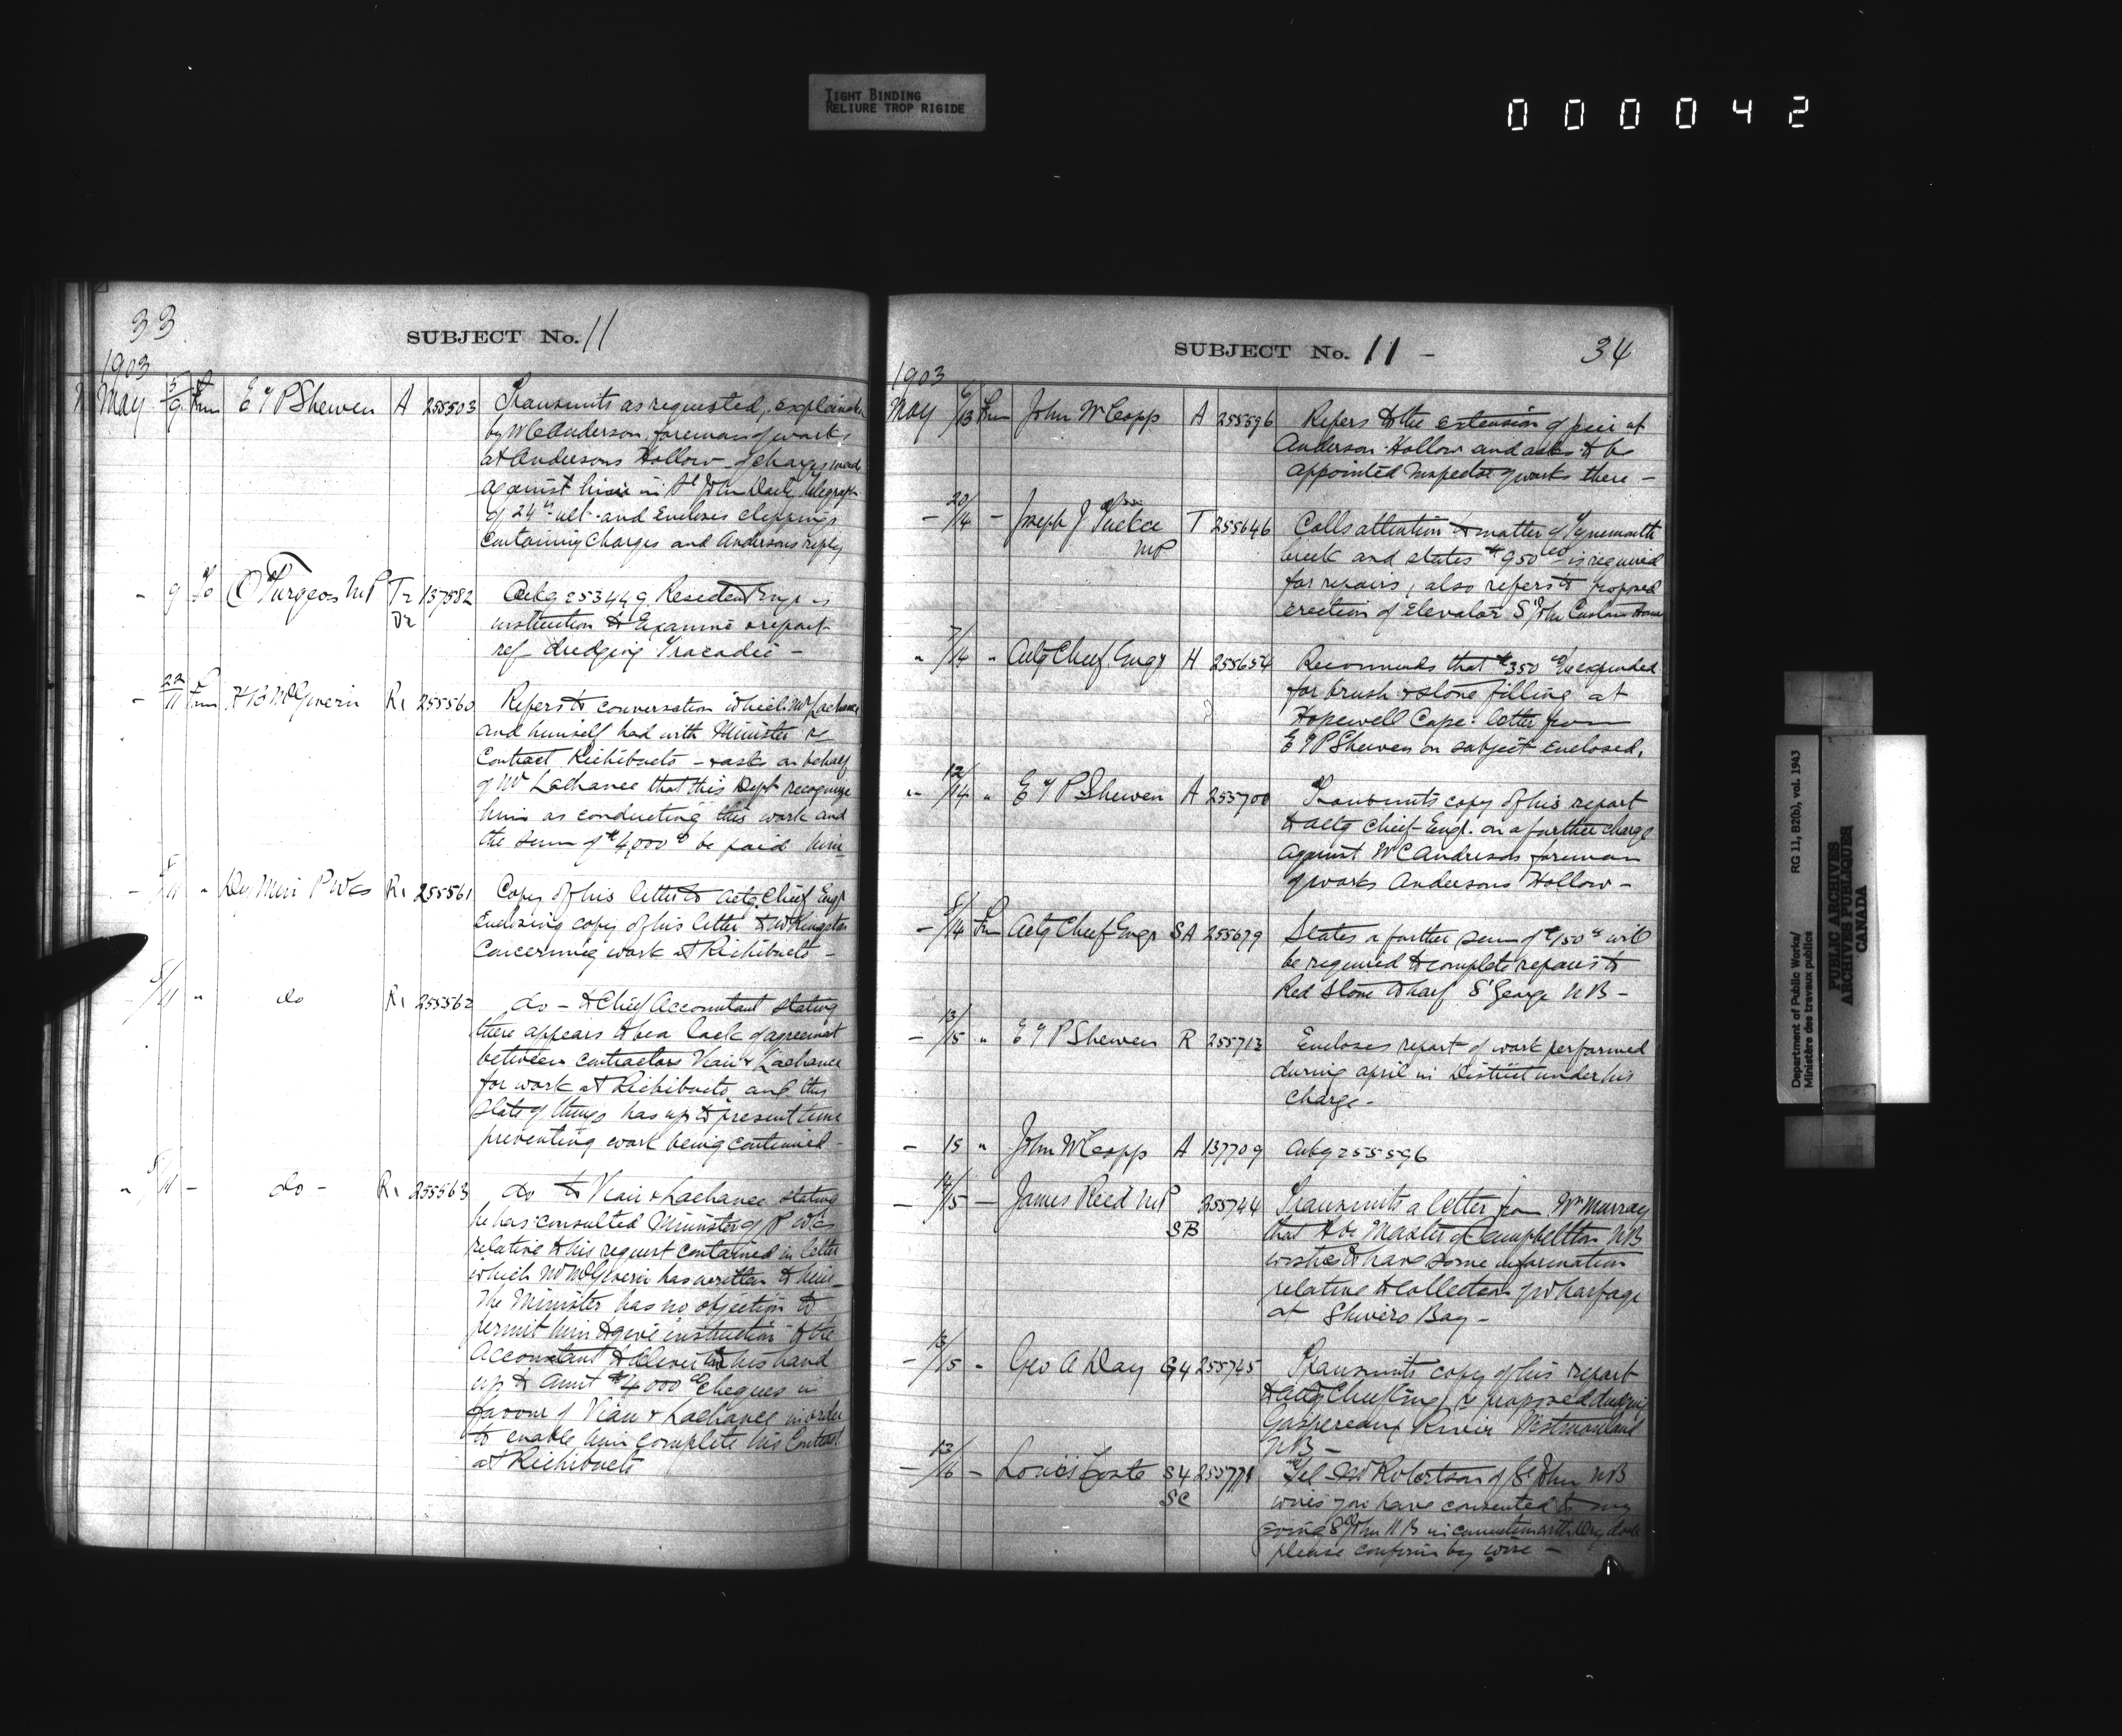 TIGHT BINDING
RELIURE TROP RIGIDE
000042
33
SUBJECT No. 11
1903
May 5/9 Frm E T P Shewen A 255503 Transmits as requested, explanation
by W C Anderson, foreman of works
at Andersons Hollow of charges made
against him in St John Daily Telegraph
of 24th ult. and encloses clippings
containing charges and Andersons reply
- 9 To O Turgeon MP Tr 137582 Ackg 253449 Resident Engr is
Dr instruction to examine & report
ref dredging Tracadie -
- 22/11 Frm H B McGiverin Ri 255560 Refers to conversation which Mr Lachance
and himself had with Minister re
Contract Richibucto - & asks on behalf
of Mr Lachance that this Dept recognize
him as conducting this work and
the sum of $4,000 00 be paid him
- 5/11 " Dy Min P Wks Ri 255561 Copy of his letter to actg Chief Engr
Enclosing copy of his letter to Mr Kingston
Concerning work at Richibucto -
- 5/11 " do Ri 255562 do - to Chief Accountant stating
there appears to be a lack of agreement
between contractors Viau & Lachance
for work at Richibucto and this
state of things has up to present time
preventing work being continued -
" 5/11 - do - Ri 255563 do to Viau & Lachance stating
he has consulted Minister of P Wks
relative to his request contained in letter
which Mr McGiverin has written to him
The Minister has no objection to
permit him to give instruction to the
Accountant to deliver in his hand
up to amt $4000 00 cheques in
favour of Viau & Lachance in order
to enable him complete his Contract
at Richibucto
SUBJECT No. 11 -
34
1903
May 6/13 Frm John W Copp A 255596 Refers to the extension of pier at
Anderson Hollow and asks to be
appointed Inspector of works there -
- 20/14 - Joseph J Tucker T 255646 Calls attention to matter of Tynemouth
MP Creek and states $950 00 is required
for repairs, also refers to proposed
erection of elevator St John Custom House
" 7/14 " Actg Chief Engr H 255654 Recommends that $350 00 be expended
for brush & stone filling at
Hopewell Cape. letter from
E T P Shewen on subject enclosed.
" 12/14 " E T P Shewen A 255700 Transmits copy of his report
to actg Chief Engr. on a further charge
against W C Anderson foreman
of works Andersons Hollow -
- 8/14 Frm Actg Chief Engr SA 255679 States a further sum of $150 00 will
be required to complete repairs to
Red Stone Wharf St George NB -
- 13/15 " E T P Shewen R 255713 Encloses report of work performed
during april in District under his
charge -
- 15 " John W Copp A 137709 Ackg 255596
- 14/15 - James Reid MP 255744 Transmits a letter from Wm Murray
SB that Hbr Master of Campbellton NB
wishes to have some information
relative to collection of wharfage
at Shivers Bay -
- 13/15 " Geo A Day G4 255745 Transmits copy of his report
to actg Chief Engr re proposed dredging
Gaspereaux River Westmorland
NB -
- 13/16 - Louis Coste S4 255771 Tel - Robertson of St John NB
SC wires you have consented to my
going St John NB in connection with Dry dock
please confirm by wire -
Department of Public Works/ RG 11, B2(b), vol. 1943
Ministère des travaux publics
PUBLIC ARCHIVES
ARCHIVES PUBLIQUES
CANADA